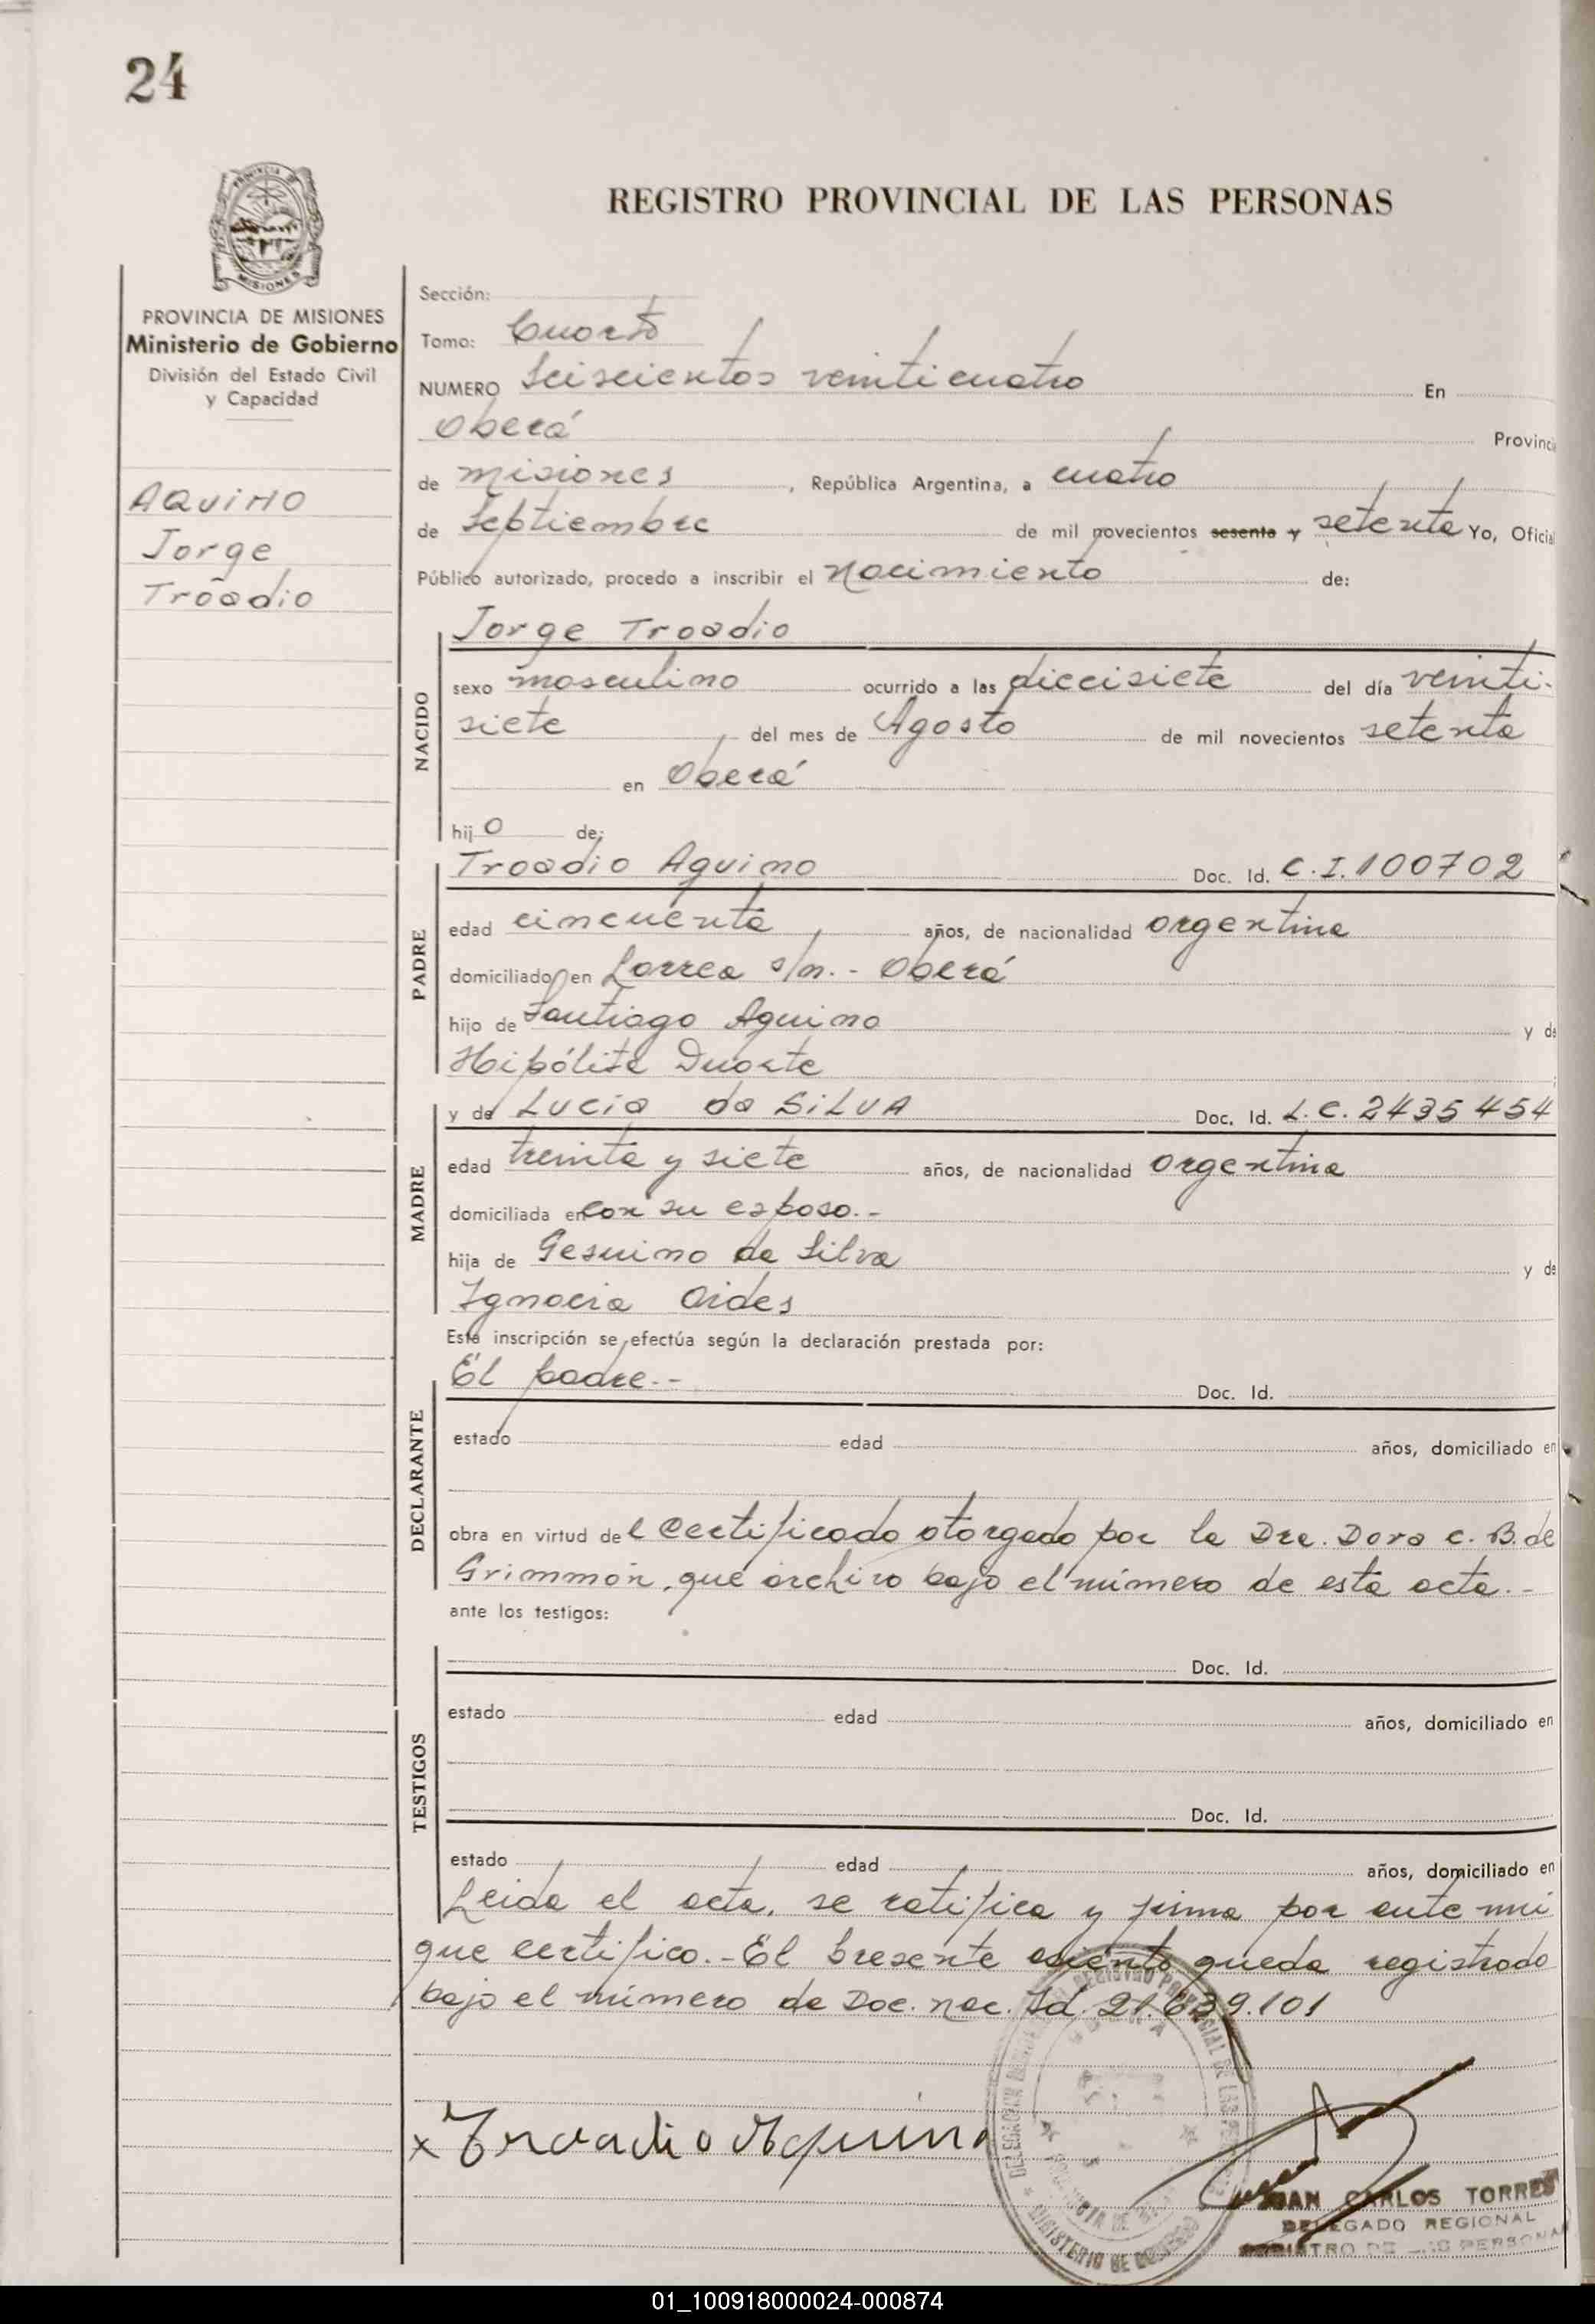 24
PROVINCIA DE
MISIONES
REGISTRO PROVINCIAL DE LAS PERSONAS
PROVINCIA DE MISIONES
Ministerio de Gobierno
División del Estado Civil
y Capacidad
AQUINO
Jorge
Troadio
Sección:
Tomo: Cuarto
NUMERO Seiscientos veinticuatro En
Oberá Provincia
de misiones, República Argentina, a cuatro
de Septiembre de mil novecientos sesenta y setenta Yo, Oficial
Público autorizado, procedo a inscribir el nacimiento de:
NACIDO
Jorge Troadio
sexo masculino ocurrido a las diecisiete del día veinti-
siete del mes de Agosto de mil novecientos setenta
en Oberá
hijo de:
PADRE
Troadio Aquino Doc. Id. C.I. 100702
edad cincuenta años, de nacionalidad argentina
domiciliado en Larrea s/n.- Oberá
hijo de Santiago Aquino y de
Hipólita Duarte
MADRE
y de Lucia da SILVA Doc. Id. L.C. 2435454
edad treinta y siete años, de nacionalidad argentina
domiciliada en con su esposo.-
hija de Gesuino da Silva y de
Ignacia Aides
Esta inscripción se efectúa según la declaración prestada por:
DECLARANTE
El padre.- Doc. Id.
estado edad años, domiciliado en
obra en virtud del certificado otorgado por la Dra. Dora C. B. de
Grimmon, que archivo bajo el número de esta acta.-
ante los testigos:
TESTIGOS
Doc. Id.
estado edad años, domiciliado en
Doc. Id.
estado edad años, domiciliado en
Leida el acta, se ratifica y firma por ante mi
que certifico.- El presente asiento queda registrado
bajo el número de Doc. nac. Id. 21.639.101
x Troadio Aquino
REGISTRO PROVINCIAL DE LAS
MINISTERIO DE GOBIERNO
JUAN CARLOS TORRES
DELEGADO REGIONAL
REGISTRO DE LAS PERSONAS
01_100918000024-000874